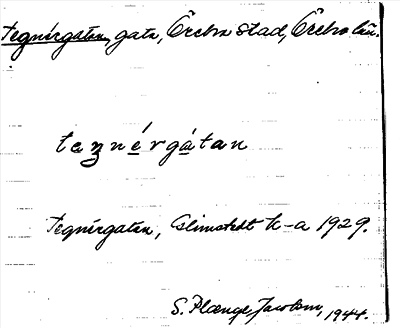 Tegnérgatan, gata, Örebro stad, Örebro län.
teŋnérgàtan
Tegnérgatan, Glimstedt k-a 1929.
S. Plænge Jacobson, 1944.